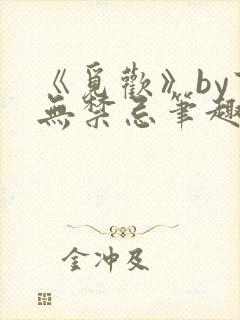 《覓歡》by
無禁忌筆趣
金冲及